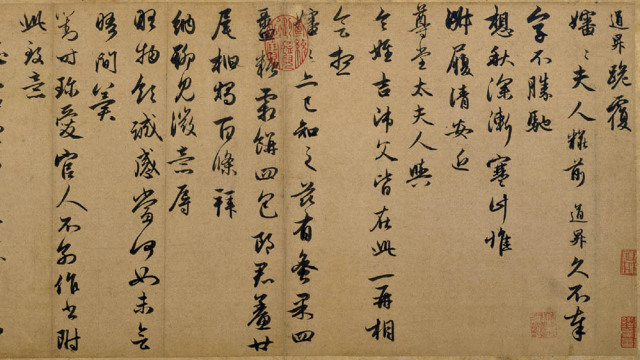 道昇跪覆
嬸嬸夫人粧前道昇久不奉
字不勝馳
想秋深漸寒計惟
淑履清安近
尊堂太夫人與
令姪吉師父皆在此一再相
會想
嬸嬸亦已知之茲有蜜果四
盝糖霜餅四包郎君鯗廿
尾柏燭百條拜
納聊見微意辱
物領誠感當何如未會
晤間冀
對時珍愛官人不別作書附
此致意